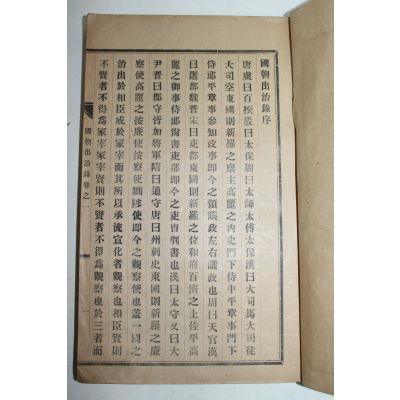 國朝出治錄序
唐虞曰百揆殷曰太保周曰太師太傅太保漢曰大司馬大司徒
大司空東國則新羅之麋主高麗之內史門下侍中平章事門下
侍郎平章事參知政事即今之領議政左右議政也周曰天官漢
曰選部魏晋宋曰吏部東國則新羅之位和府百濟之上佐平高
麗之御事侍郎尙書吏部即今之吏曹判書也漢曰太守又曰大
尹晋曰郡守皆加將軍隋曰通守唐曰州刺史東國則新羅之廉
察使高麗之按廉使按察使黜陟使即今之觀察使也盖一國之
治出於相臣成於冢宰而其所以承流宣化者觀察也相臣賢則
不賢者不得爲冢宰冢宰賢則不賢者不得爲觀察也於三者而
國朝出治錄卷之一
一